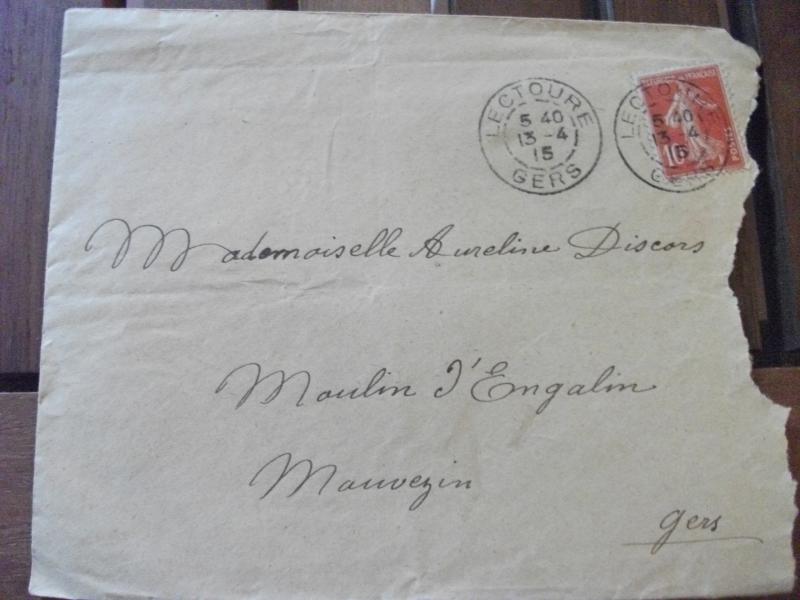 LECTOURE
5 40
13 - 4
15
GERS
LECTOURE
5 40
13 4
15
GERS
FRANÇAISE
10
POSTES
Mademoiselle Aureline Discors
Moulin d'Engalin
Mauvezin
Gers